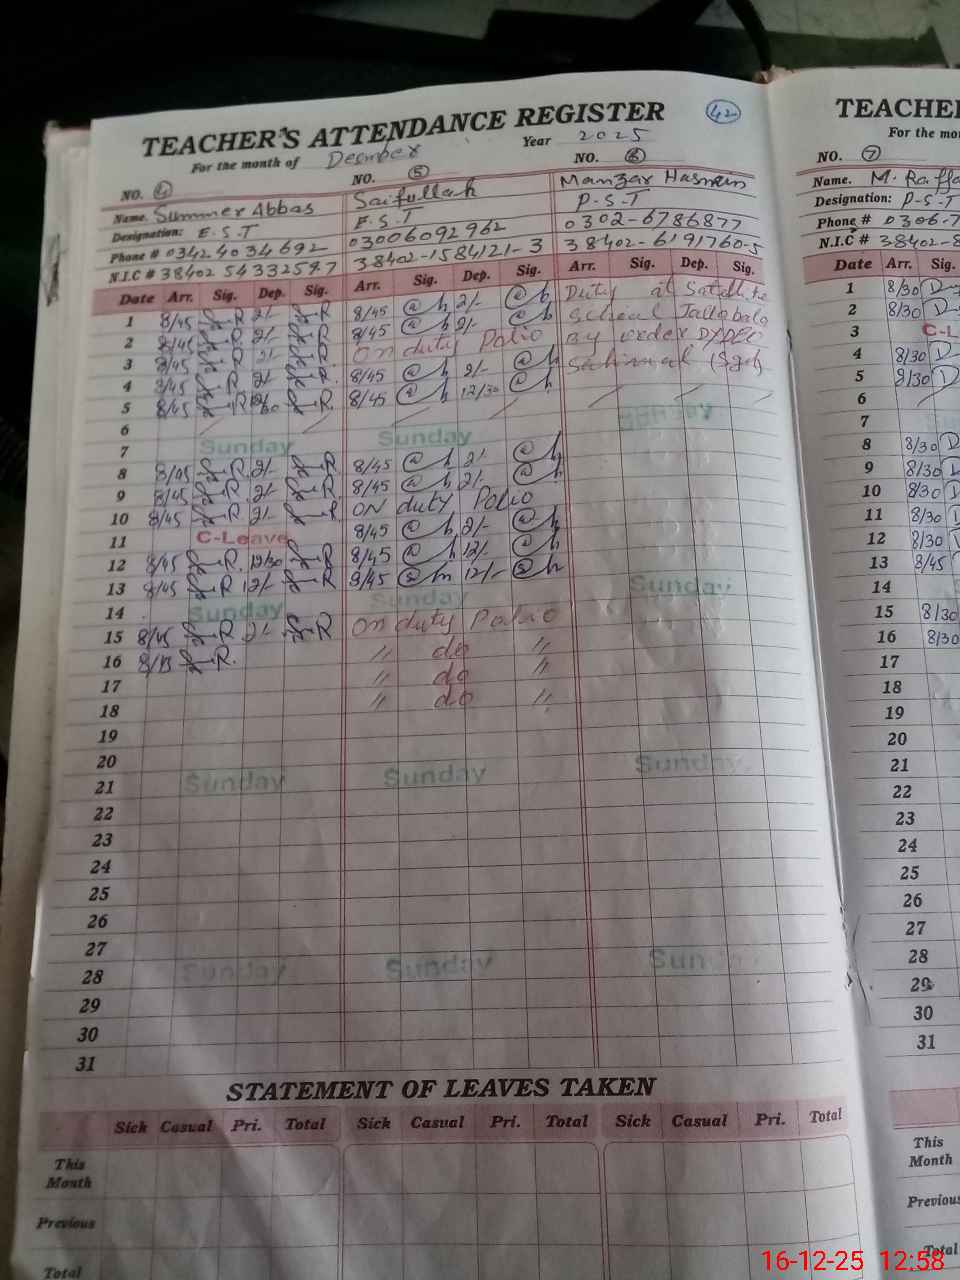 42
TEACHER'S ATTENDANCE REGISTER
For the month of Decmber Year 2025
NO. 4 NO. 5 NO. 6
Name. Summer Abbas Saifullah Manzar Hasnain
Designation: E.S.T E.S.T P.S.T
Phone # 03424034692 03006092962 0302-6786877
N.I.C # 38402 5433259-7 38402-1584121-3 38402-6191760-5
Date Arr. Sig. Dep. Sig. Arr. Sig. Dep. Sig. Arr. Sig. Dep. Sig.
1 8/45 2/- 8/45 2/- Duty at Satellite
2 8/45 2/- 8/45 2/- School
3 8/45 2/- On duty Polio By order DyDEO
4 8/45 2/- 8/45 2/-
5 8/45 8/45 12/30
6
7 Sunday Sunday Sunday
8 8/45 2/- 8/45 2/-
9 8/45 2/- 8/45 2/-
10 8/45 2/- ON duty Polio
11 C-Leave 8/45 2/-
12 8/45 12/30 8/45 12/-
13 8/45 12/- 8/45 12/-
14 Sunday Sunday Sunday
15 8/45 2/- On duty Polio
16 " do "
17 " do "
18 " do "
19
20
21 Sunday Sunday Sunday
22
23
24
25
26
27
28 Sunday Sunday Sun
29
30
31
STATEMENT OF LEAVES TAKEN
Sick Casual Pri. Total Sick Casual Pri. Total Sick Casual Pri. Total
This
Month
Previous
Total
TEACHE
For the mo
NO. 7
Name. M. Raffa
Designation: P-S-T
Phone # 0306-7
N.I.C # 38402-8
Date Arr. Sig.
1 8/30
2 8/30
3 C-L
4 8/30
5 8/30
6
7
8 8/30
9 8/30
10 8/30
11 8/30
12 8/30
13 8/45
14
15 8/30
16 8/30
17
18
19
20
21
22
23
24
25
26
27
28
29
30
31
This
Month
Previous
Total
16-12-25 12:58